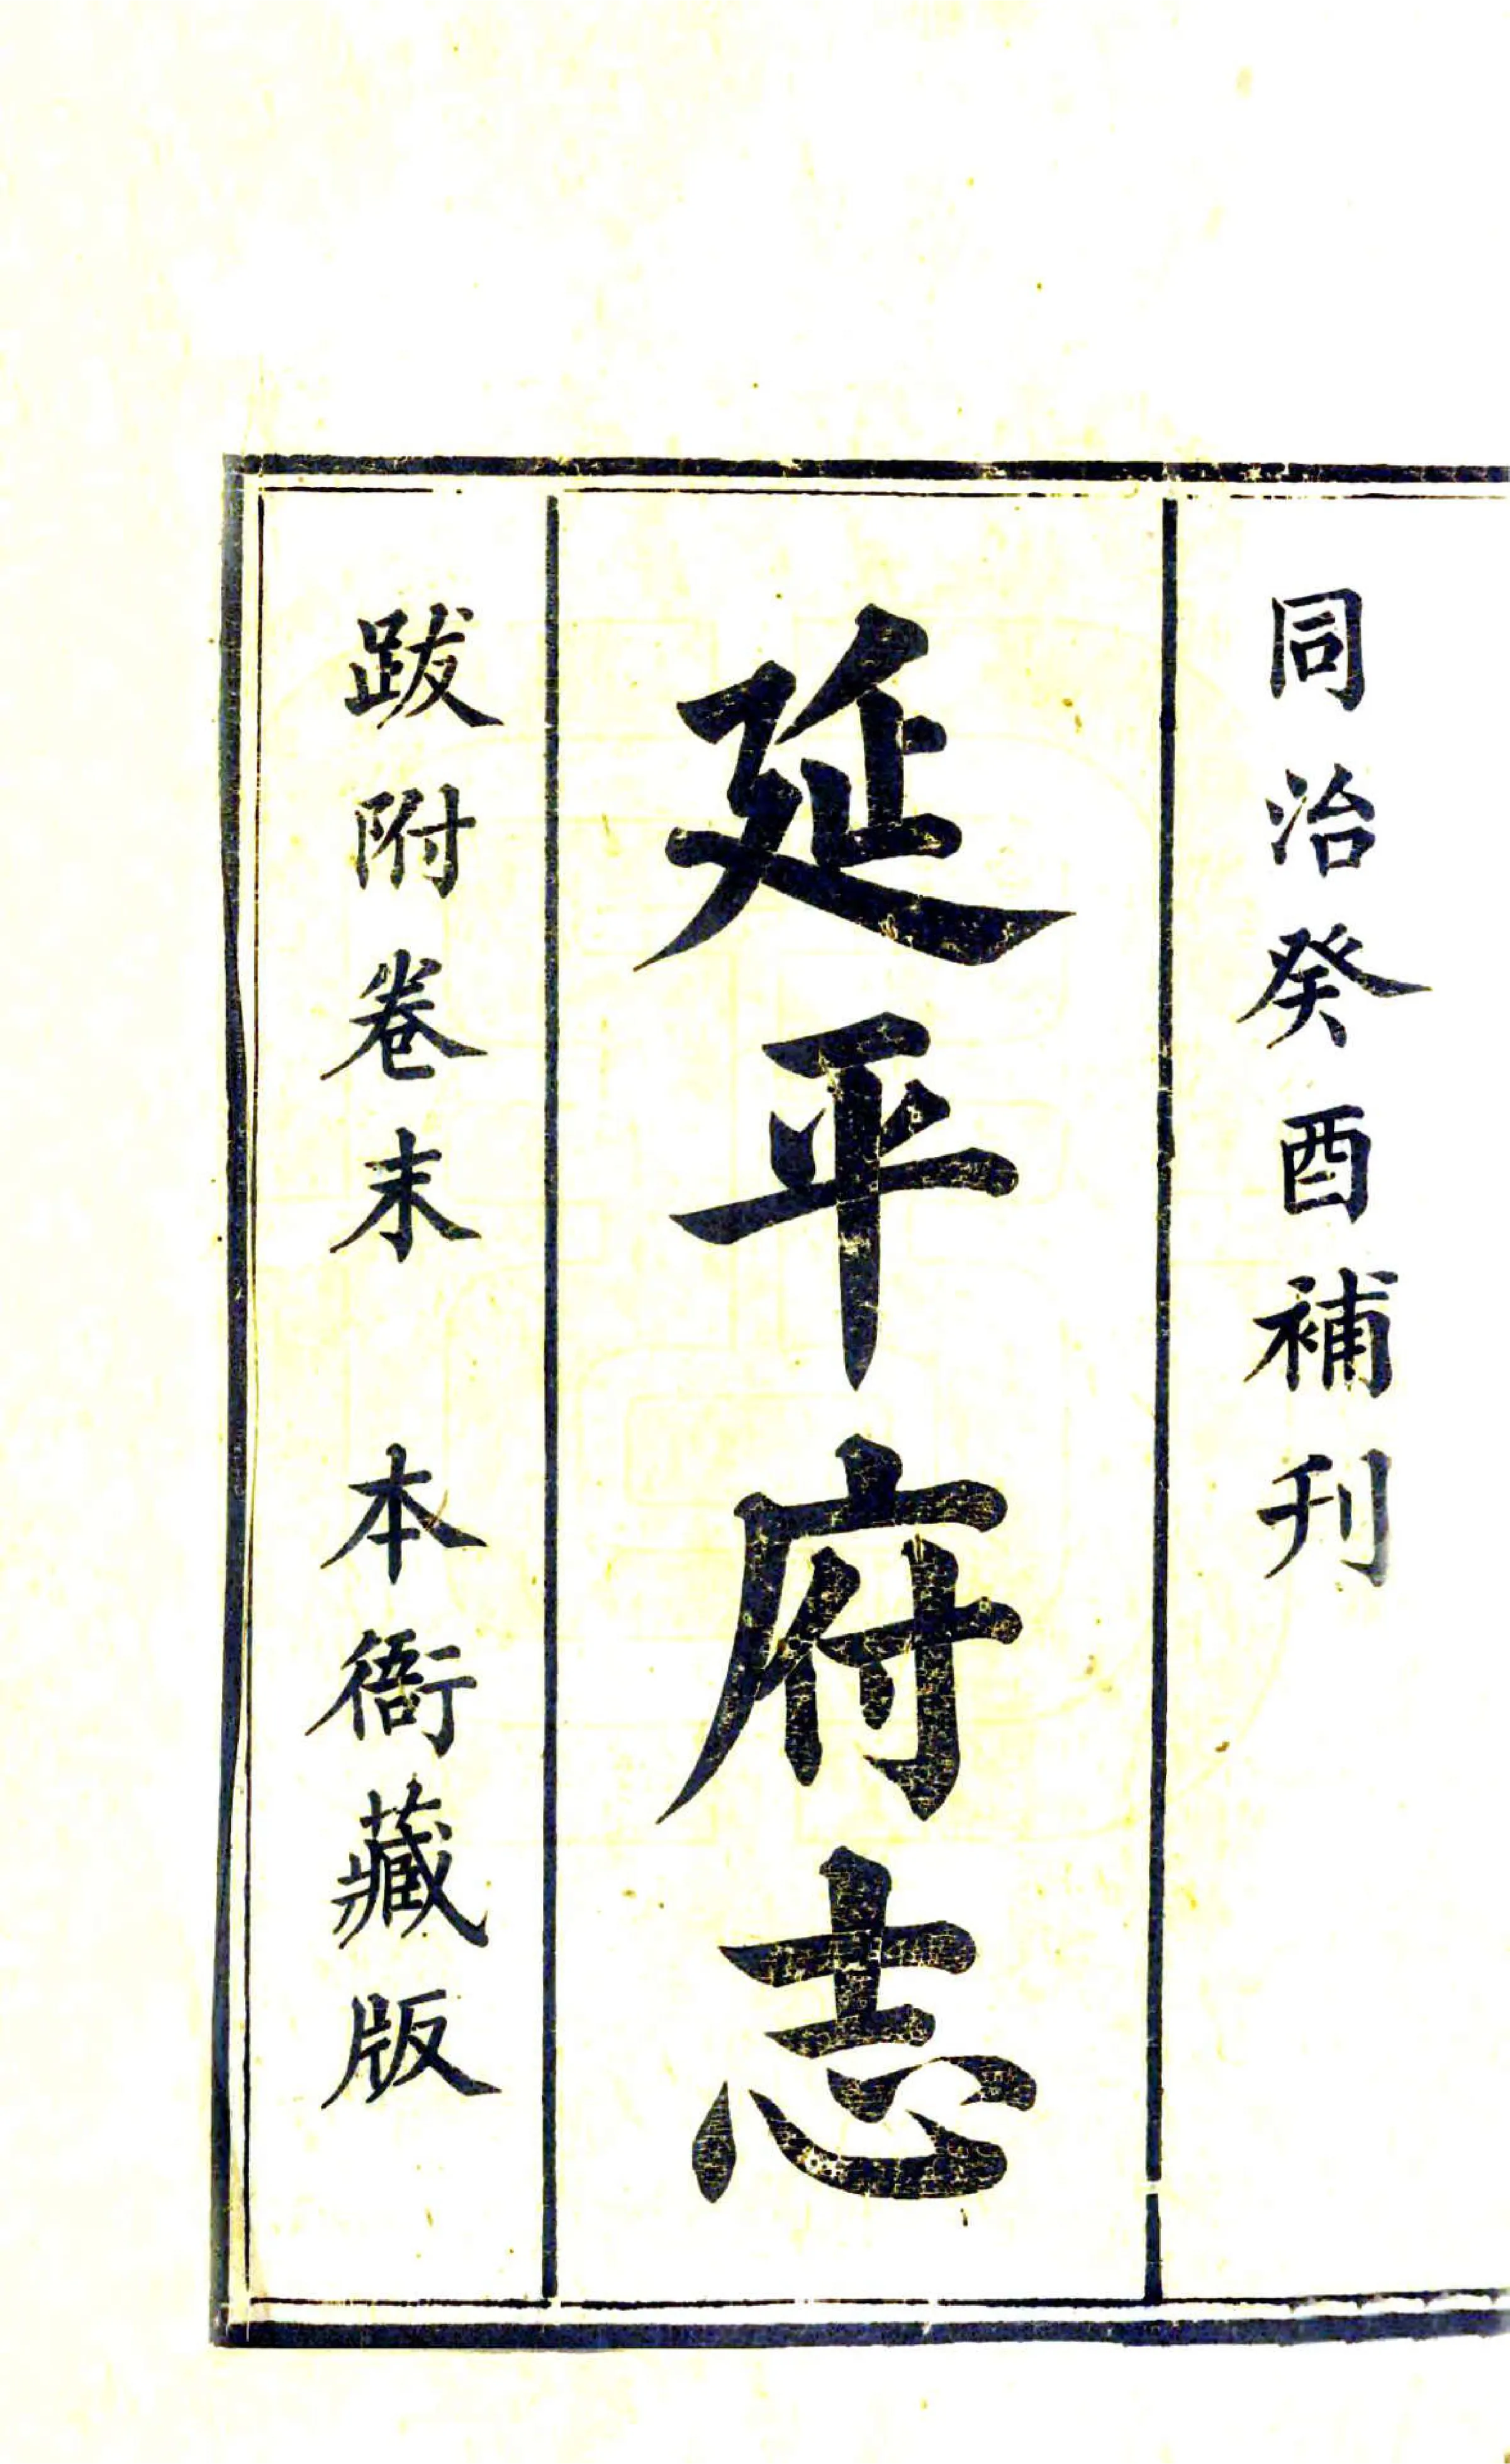 同治癸酉補刊
延平府志
跋附卷末　本衙藏版